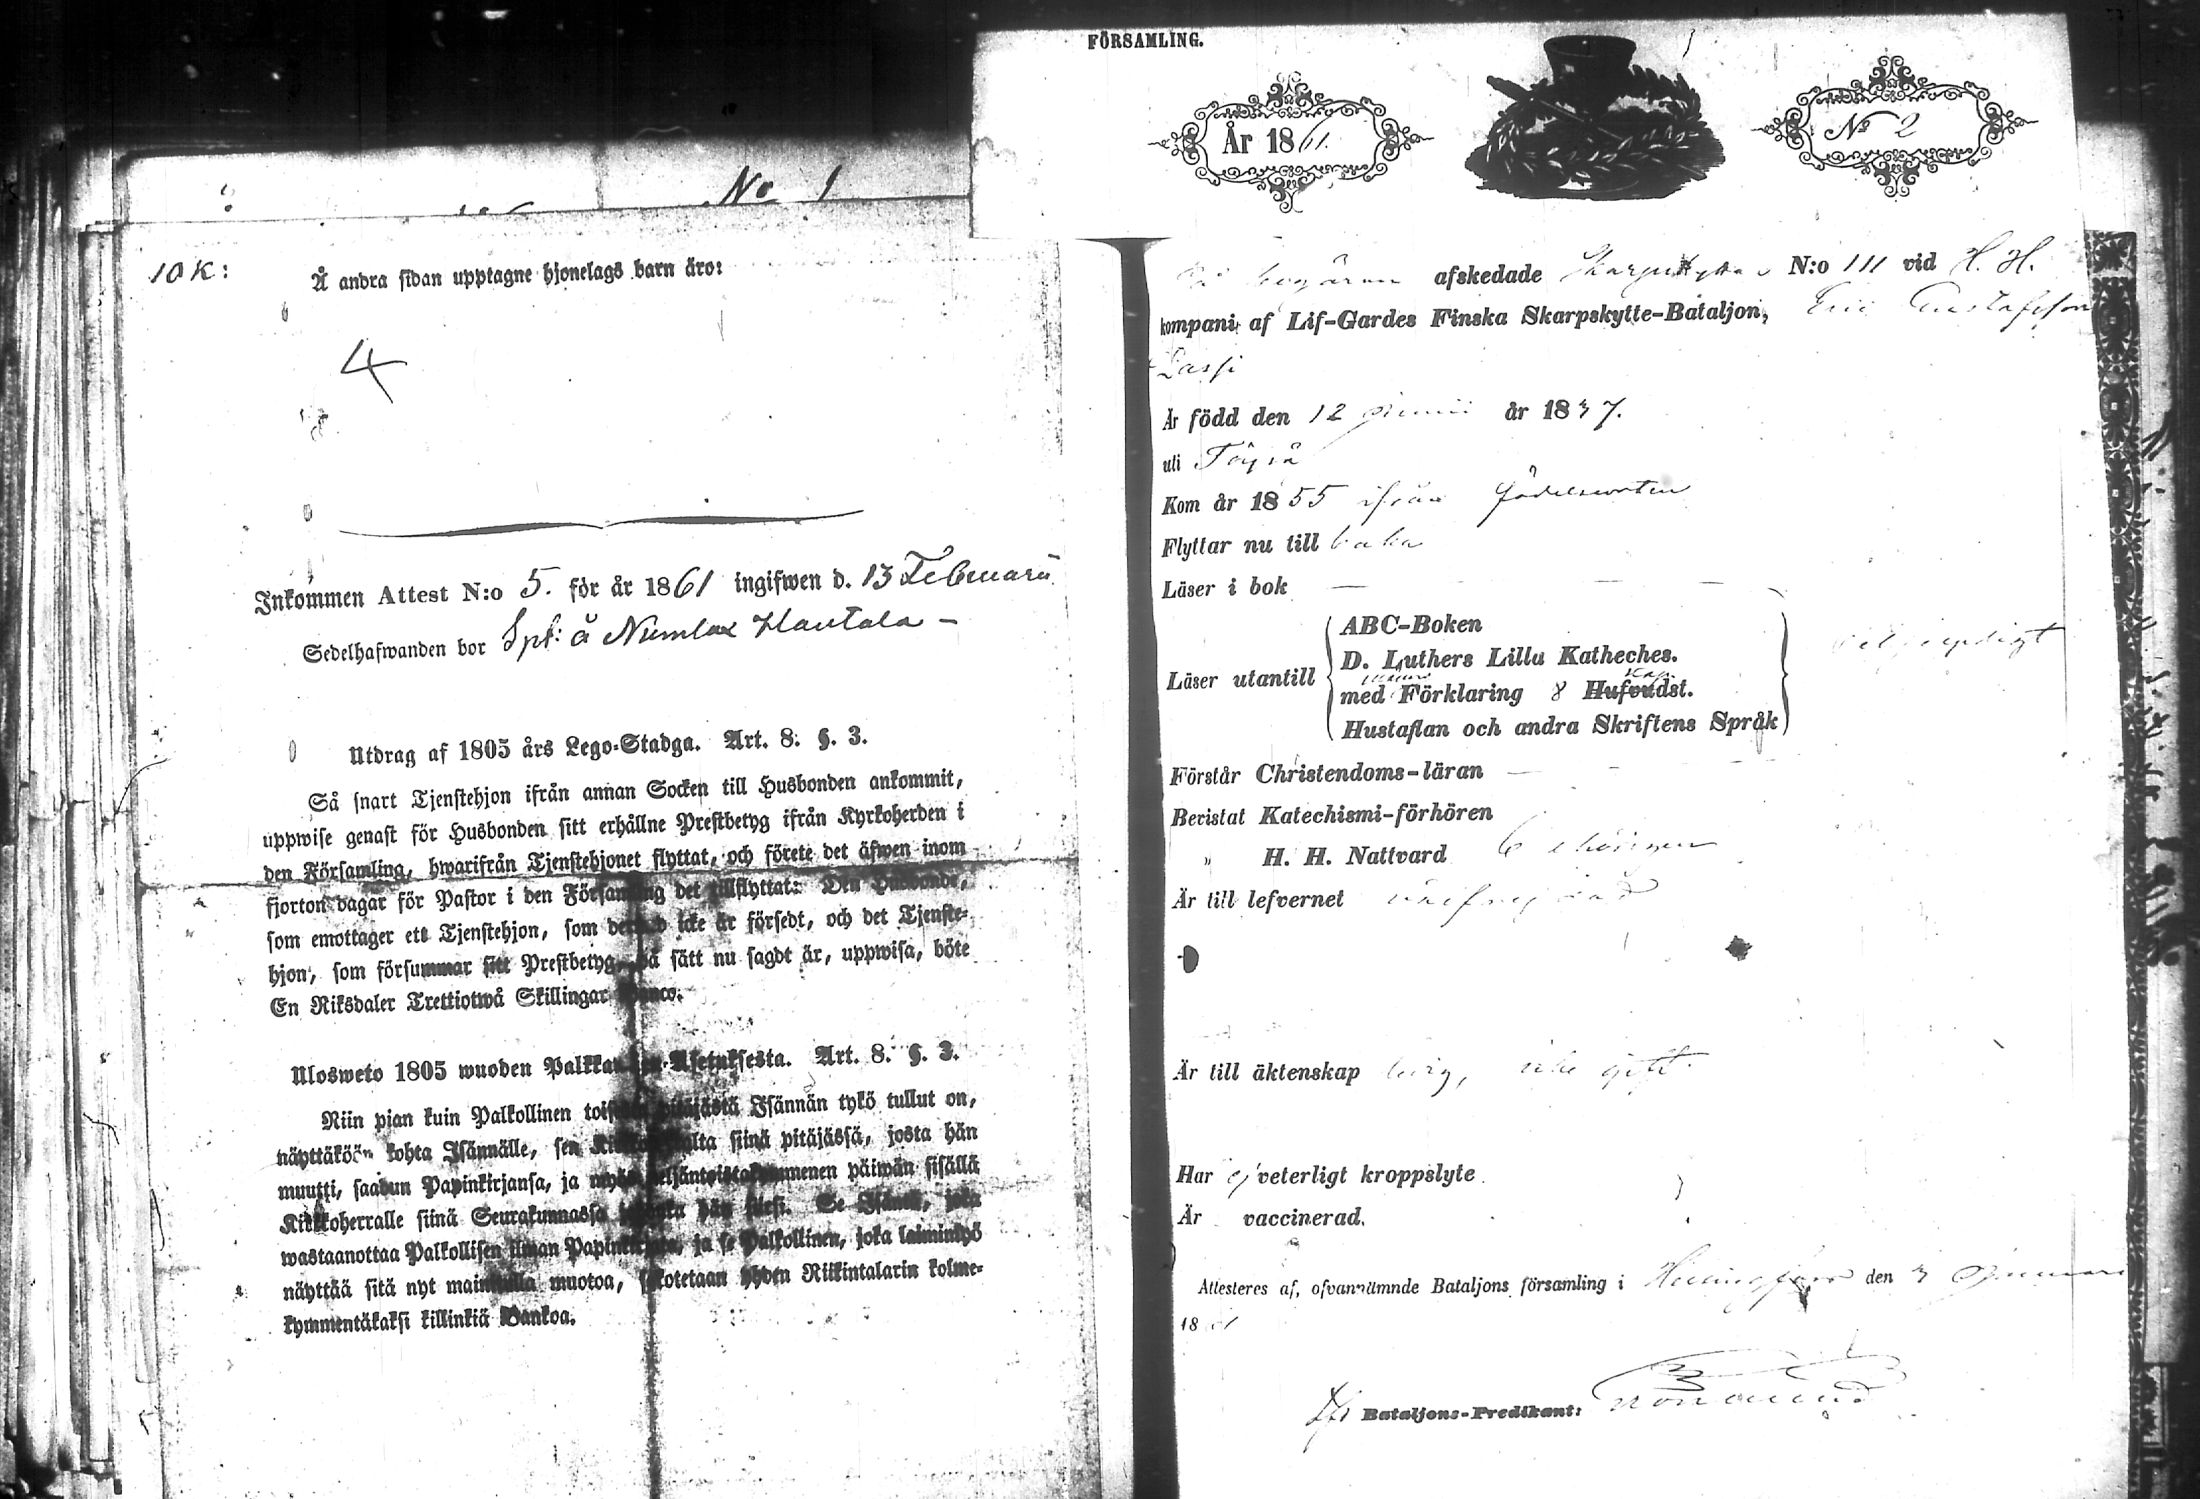 No 1
10 K:
Å andra sidan upptagne hjonelags barn äro:
4
Inkommen Attest N:o 5. för år 1861 ingifwen d. 13 Februarii
Sedelhafwanden bor Spf: å Numlax Hautala –
Utdrag af 1805 års Lego-Stadga. Art. 8. §. 3.
Så snart Tjenstehjon ifrån annan Socken till Husbonden ankommit,
uppwise genast för Husbonden sitt erhållne Prestbetyg ifrån Kyrkoherden i
den Församling, hwarifrån Tjenstehjonet flyttat, och förete det äfwen inom
fjorton dagar för Pastor i den Församling det tillflyttat: Den Husbonde,
som emottager ett Tjenstehjon, som dermed icke är försedt, och det Tjenste-
hjon, som försummar sitt Prestbetyg, på sätt nu sagdt är, uppwisa, böte
En Riksdaler Trettiotwå Skillingar Banco.
Ulosweto 1805 wuoden Palkkaus-Asetuksesta. Art. 8. §. 3.
Niin pian kuin Palkollinen toisesta pitäjästä Isännän tykö tullut on,
näyttäköön kohta Isännälle, sen Kirkkoherralta siinä pitäjässä, josta hän
muutti, saadun Papinkirjansa, ja myös neljäntoistakymmenen päiwän sisällä
Kirkkoherralle siinä Seurakunnassa johonka hän siirsi. Se Isäntä, joka
wastaanottaa Palkollisen ilman Papinkirjata, ja se Palkollinen, joka laiminlyö
näyttää sitä nyt mainitulla muotoa, sakotetaan yhden Riikintalarin kolme-
kymmentäkaksi killinkiä Bankoa.
FÖRSAMLING.
År 1861.
No 2
På begäran afskedade Skarpskytten N:o 111 vid H. H.
kompani af Lif-Gardes Finska Skarpskytte-Bataljon, Eric Gustafsson
Lassi
Är född den 12 Junii år 1837.
uti Töysä
Kom år 1855 ifrån födelseorten
Flyttar nu till baka
Läser i bok —
Läser utantill
ABC-Boken
D. Luthers Lilla Katheches.
med Förklaring 8 Hufvudst.
Hustaflan och andra Skriftens Språk
Förstår Christendoms-läran —
Bevistat Katechismi-förhören
" H. H. Nattvard
Är till lefvernet
Är till äktenskap ledig, icke gift.
Har ej veterligt kroppslyte.
Är vaccinerad.
Attesteres af, ofvannämnde Bataljons församling i Helsingfors den 3 Januari
1861
Bataljons-Predikant: